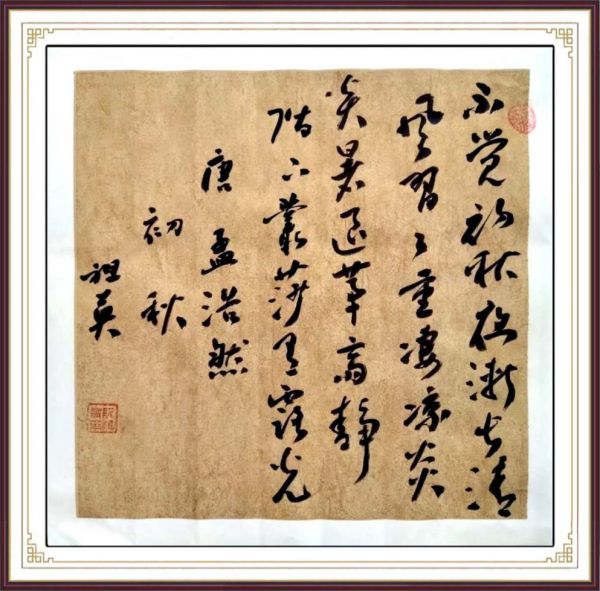 不觉初秋夜渐长清
风習々重凄凉炎
炎暑退茅斋静
階下叢莎有露光
唐孟浩然
初秋
祖英